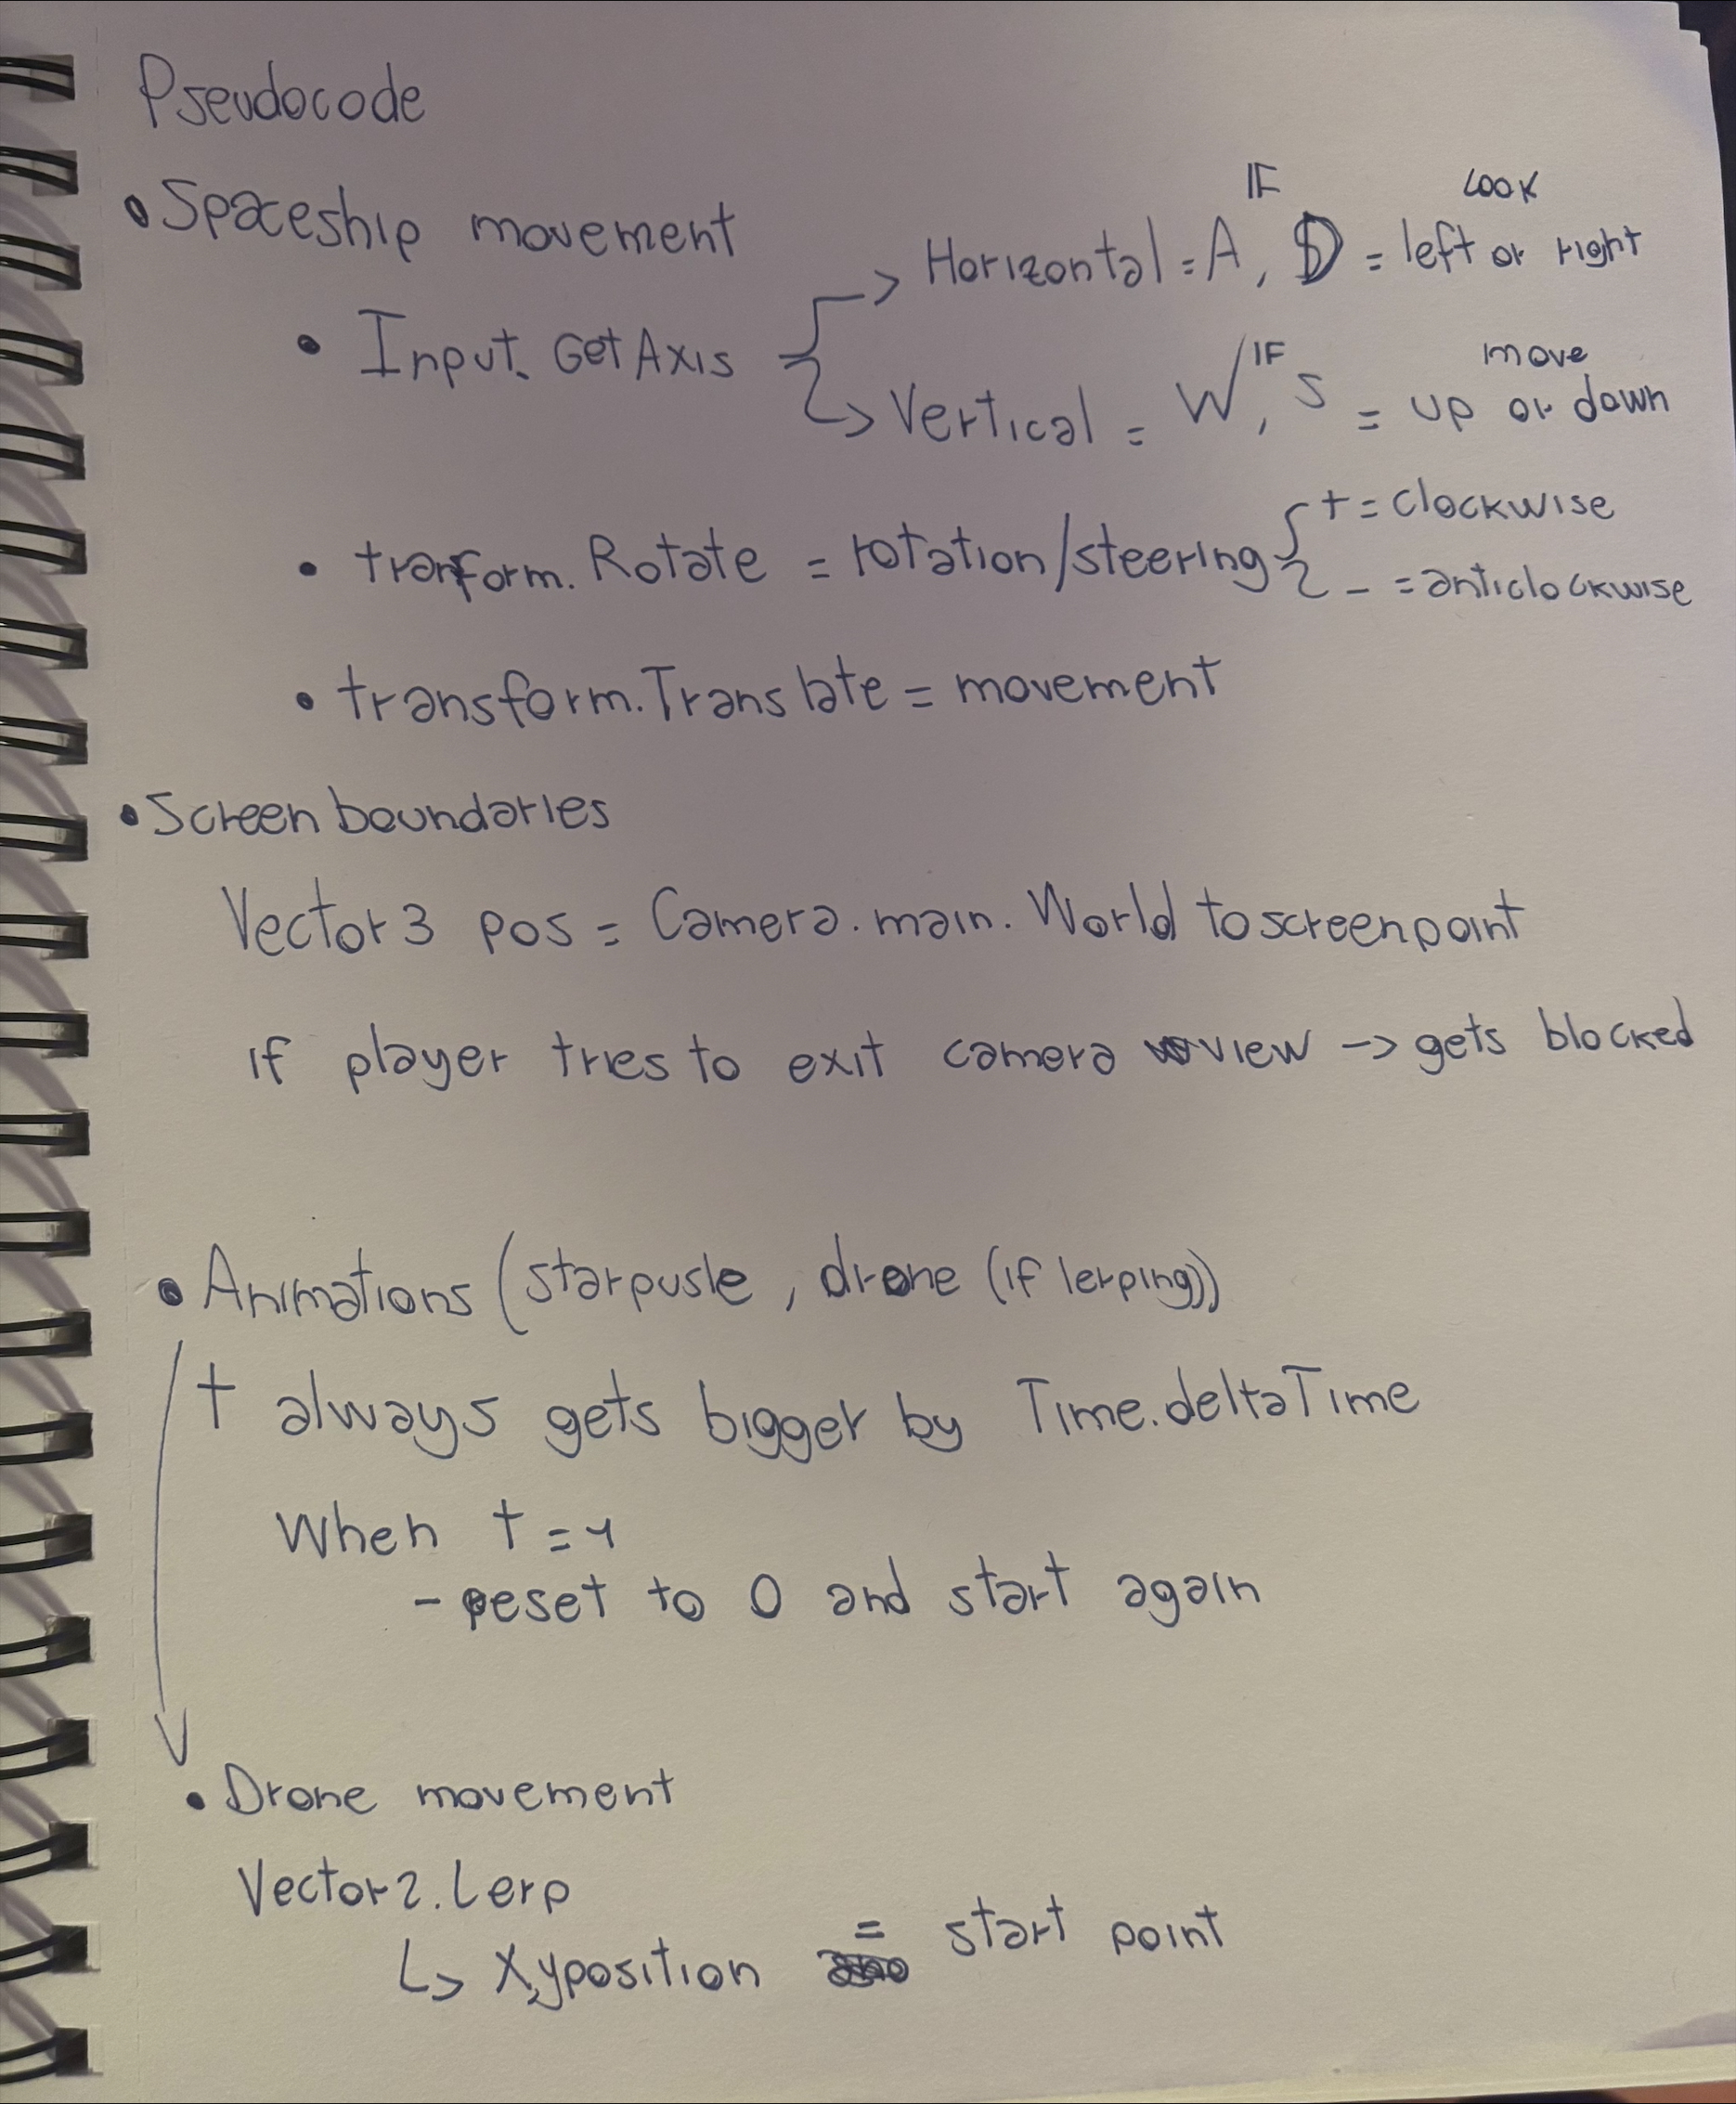 Pseudocode
• Spaceship movement
IF look
→ Horizontal = A, D = left or right
• Input. GetAxis
IF move
→ Vertical = W, S = up or down
• tranform. Rotate = rotation/steering { + = clockwise
- = anticlockwise
• transform.Translate = movement
• Screen boundaries
Vector3 pos = Camera.main. World to screenpoint
if player tries to exit camera view -> gets blocked
• Animations (starpusle, drone (if lerping))
t always gets bigger by Time.deltaTime
When t = 1
- reset to 0 and start again
• Drone movement
Vector2.Lerp
↳ x,yposition = start point